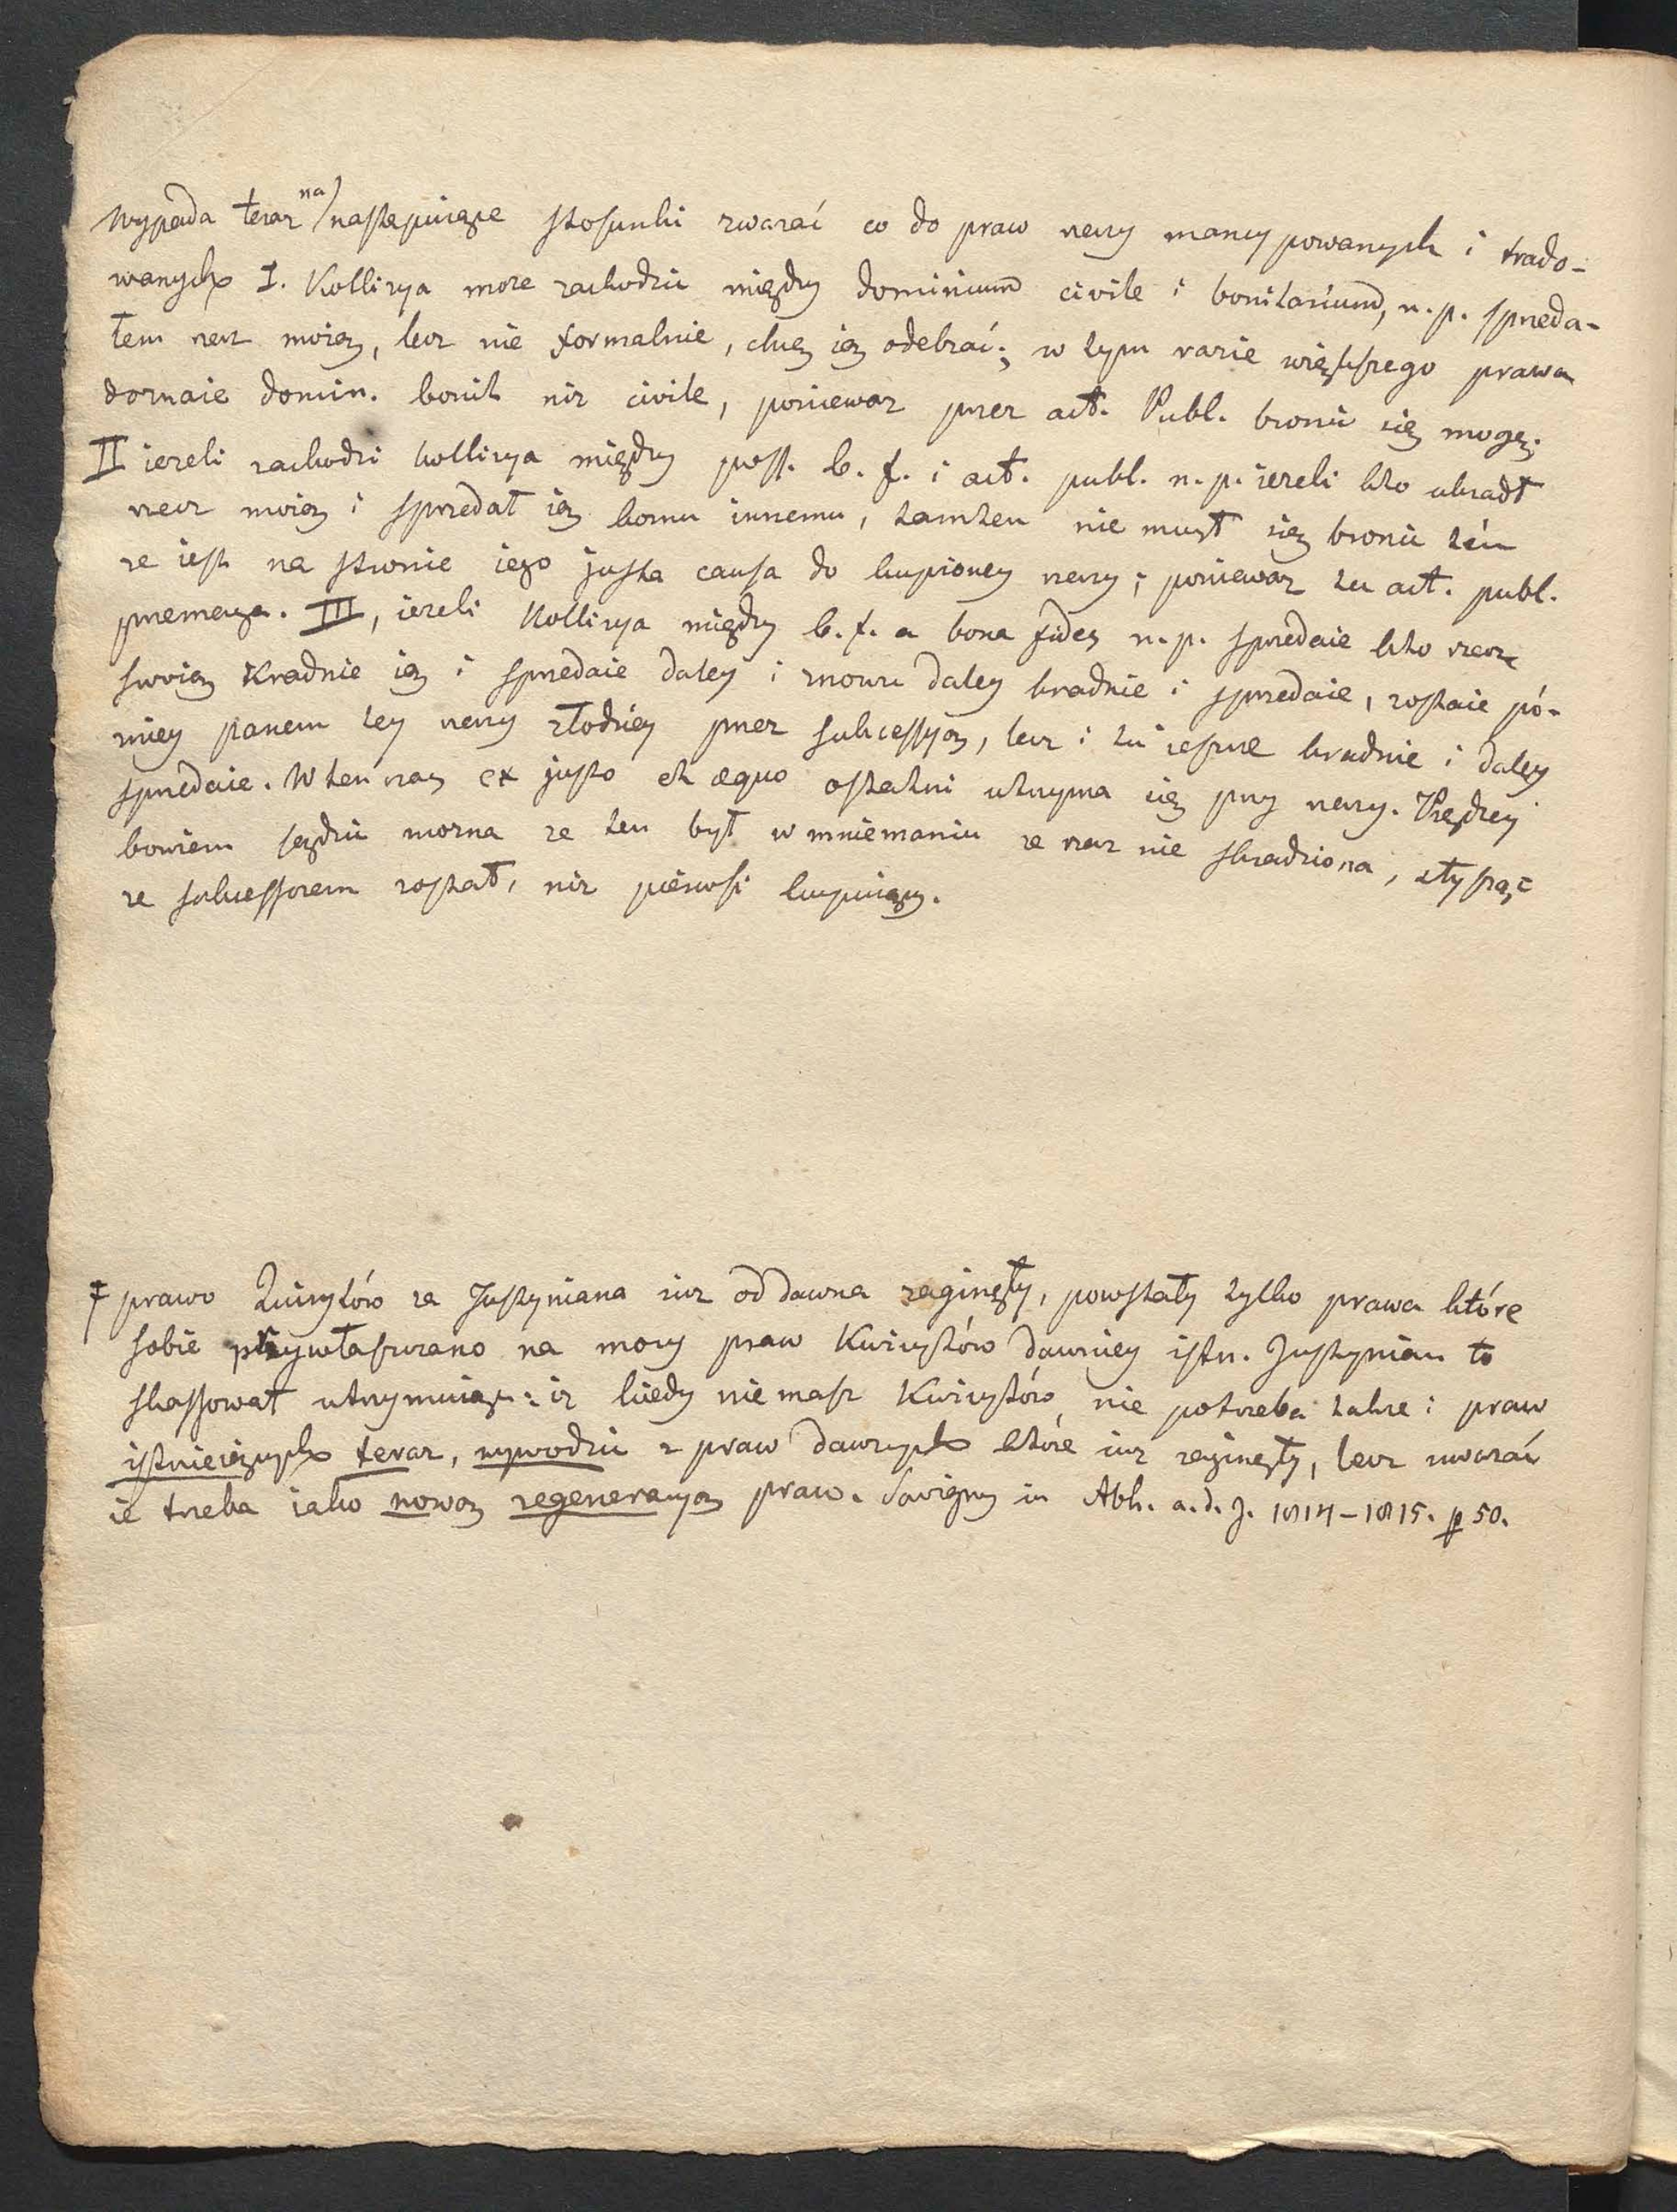 Wypada teraz na następuiące stosunki zwarać co do praw rzeczy mancypowanych i trado-
wanych I. Kollizya może zachodzić między dominium civile i bonitarium, n. p. sprzeda-
łem rzecz moię, lecz nie formalnie, chcę ię odebrać; w tym razie większego prawa
doznaie domin. bonit niż civile, ponieważ przez act. Publ. bronić się mogę.
II ieżeli zachodzi kollizya między poss. b. f. i act. publ. n. p. ieżeli kto ukradł
rzecz moię i sprzedał ię komu innemu, tamten nie mugł się bronić tém
że iest na stronie iego justa causa do kupioney rzeczy; ponieważ tu act. publ.
przemaga. III, ieżeli Kollizya między b. f. a bona fides n. p. sprzedaie kto rzecz
swoię Kradnie ię i sprzedaie daley i znowu daley kradnie i sprzedaie, zostaie pó-
zniey panem tey rzeczy złodziey przez sukcessyę, lecz i tu ieszcze kradnie i daley
sprzedaie. W ten raz ex justo et æquo ostatni utrzyma się przy rzeczy. Prędzey
bowiem sądzić można że ten był w mniemaniu że rzecz nie skradziona, słysząc
że sukcessorem został, niż pierwsi kupuiący.
‡ prawo Quirytów za Justyniana iuż od dawna zaginęły, powstały tylko prawa które
sobie przywłaszczano na mocy praw Kwirytów dawniey istn. Justynian to
skassował utrzymuiąc: iż kiedy niemasz Kwirytów nie potrzeba także i praw
istnieiących teraz, wywodzić z praw dawnych które iuż zaginęły, lecz uważać
ie trzeba iako nową regeneracyą praw. Savigny in Abh. a. d. J. 1814–1815. p 50.